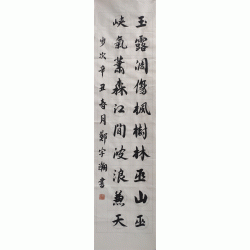 玉露凋傷楓樹林巫山巫
峽氣蕭森江間波浪兼天
歲次辛丑春月鄭宇瀚書